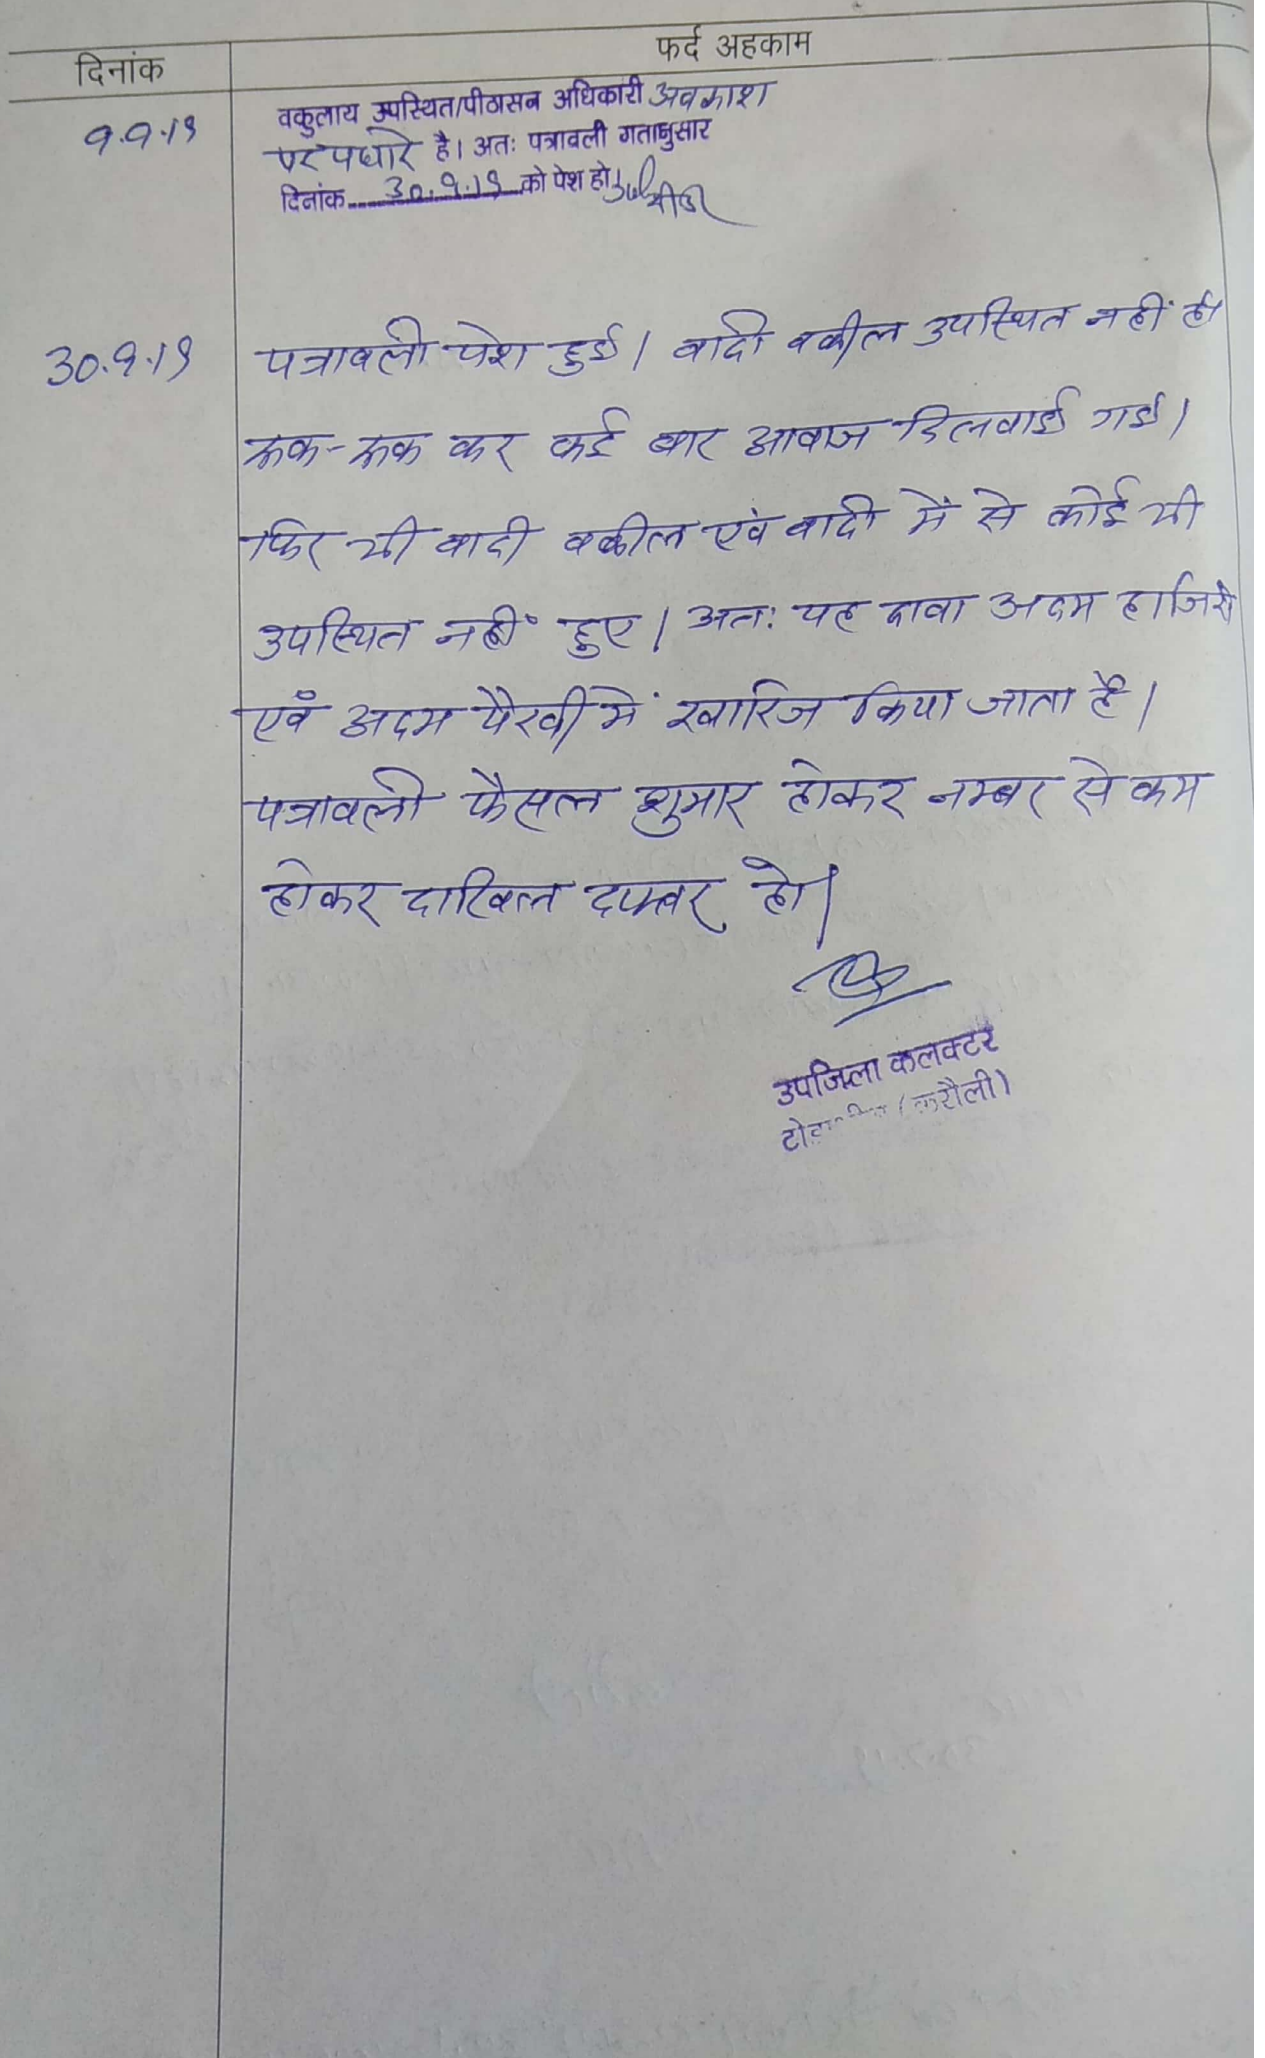 दिनांक
फर्द अहकाम
9.9.19
वकुलाय उपस्थित/पीठासन अधिकारी अवकाश
पर पधारे है। अतः पत्रावली गतानुसार
दिनांक 30.9.19 को पेश हो।
30.9.19
पत्रावली पेश हुई। वादी वकील उपस्थित नहीं है।
रूक-रूक कर कई बार आवाज दिलवाई गई।
फिर भी वादी वकील एवं वादी में से कोई भी
उपस्थित नहीं हुए। अतः यह दावा अदम हाजिरी
एवं अदम पैरवी में खारिज किया जाता है।
पत्रावली फैसल शुमार होकर नम्बर से कम
होकर दाखिल दफ्तर हो।
उपजिला कलक्टर
(करौली)